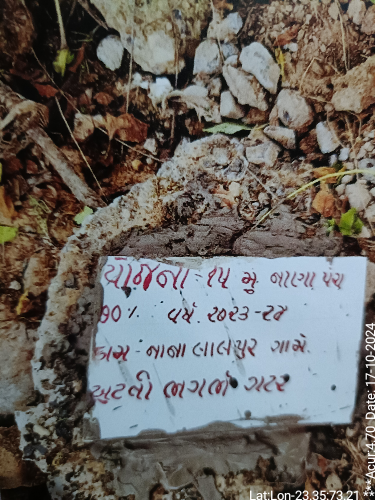 યોજના - ૧૫ મુ નાણા પંચ
૭૦% વર્ષ. ૨૦૨૩-૨૪
કામ - નાના લાલપુર ગામે.
ભુગર્ભ ગટર
Lat:Lon-23.35:73.21 ***Acur:4.70 Date: 17-10-2024